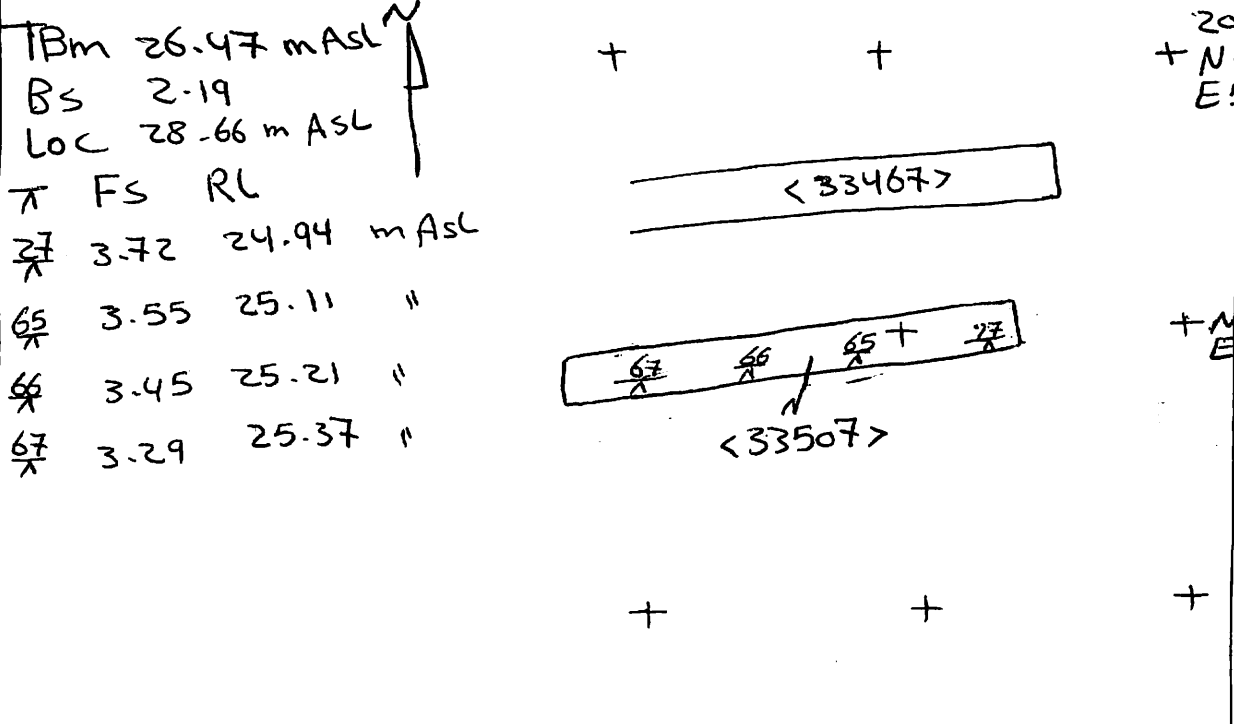 TBm 26.47 mASL
BS 2.19
LOC 28.66 m ASL
⊼ FS RL
27 3.72 24.94 m ASL
65 3.55 25.11 "
66 3.45 25.21 "
67 3.29 25.37 "
N
<33467>
67 66 65 27
<33507>
20
N
E
N
E